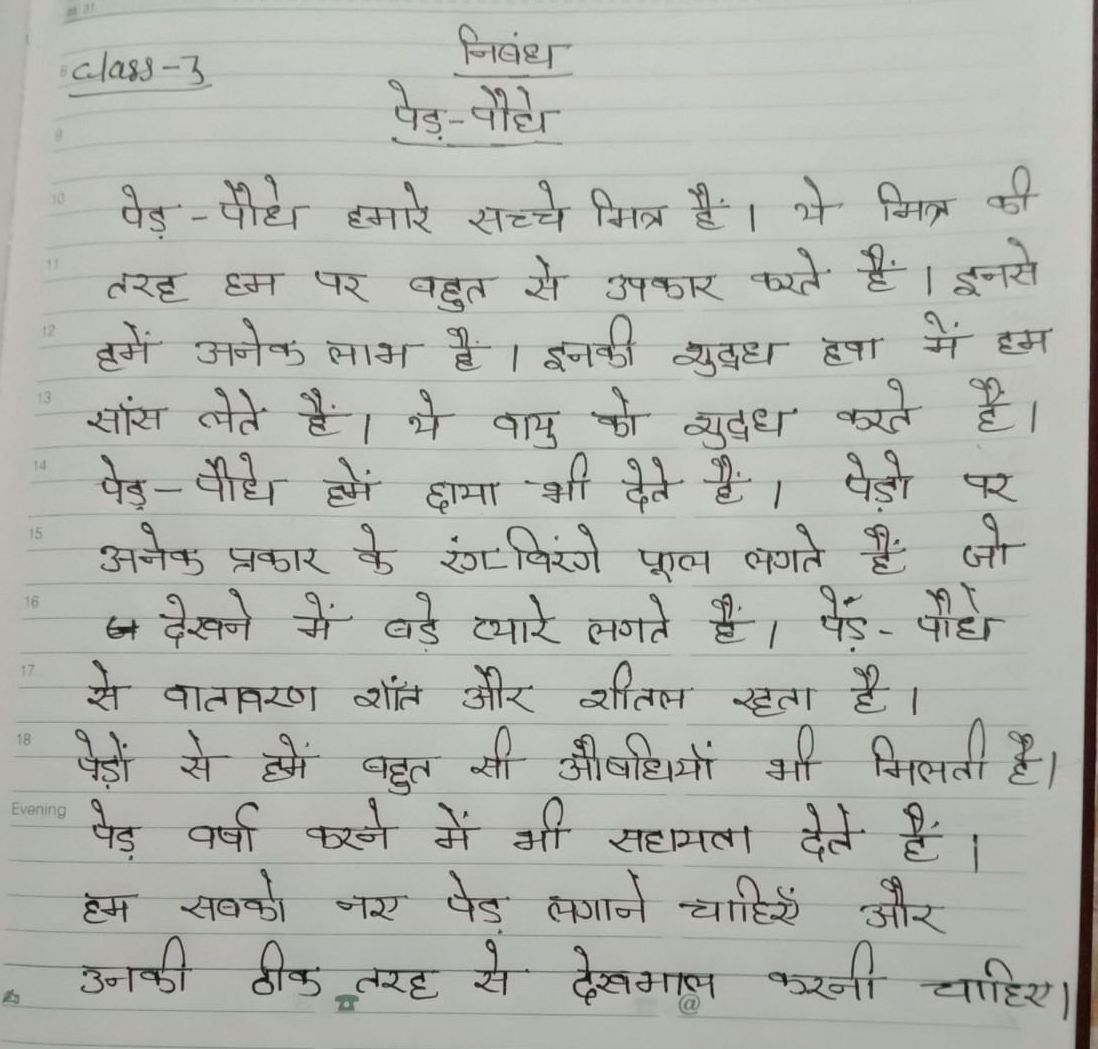 Class-3
निबंध
पेड़-पौधे
पेड़-पौधे हमारे सच्चे मित्र हैं। ये मित्र की
तरह हम पर बहुत से उपकार करते हैं। इनसे
हमें अनेक लाभ हैं। इनकी शुद्ध हवा में हम
साँस लेते हैं। ये वायु को शुद्ध करते हैं।
पेड़-पौधे हमें छाया भी देते हैं। पेड़ो पर
अनेक प्रकार के रंग-बिरंगे फूल लगते हैं जो
देखने में बड़े प्यारे लगते हैं। पेड़-पौधे
से वातावरण शांत और शीतल रहता है।
पेड़ों से हमें बहुत सी औषधियाँ भी मिलती है।
पेड़ वर्षा करने में भी सहायता देते हैं।
हम सबको नए पेड़ लगाने चाहिएँ और
उनकी ठीक तरह से देखभाल करनी चाहिए।
31
9
10
11
12
13
14
15
16
17
18
Evening
@